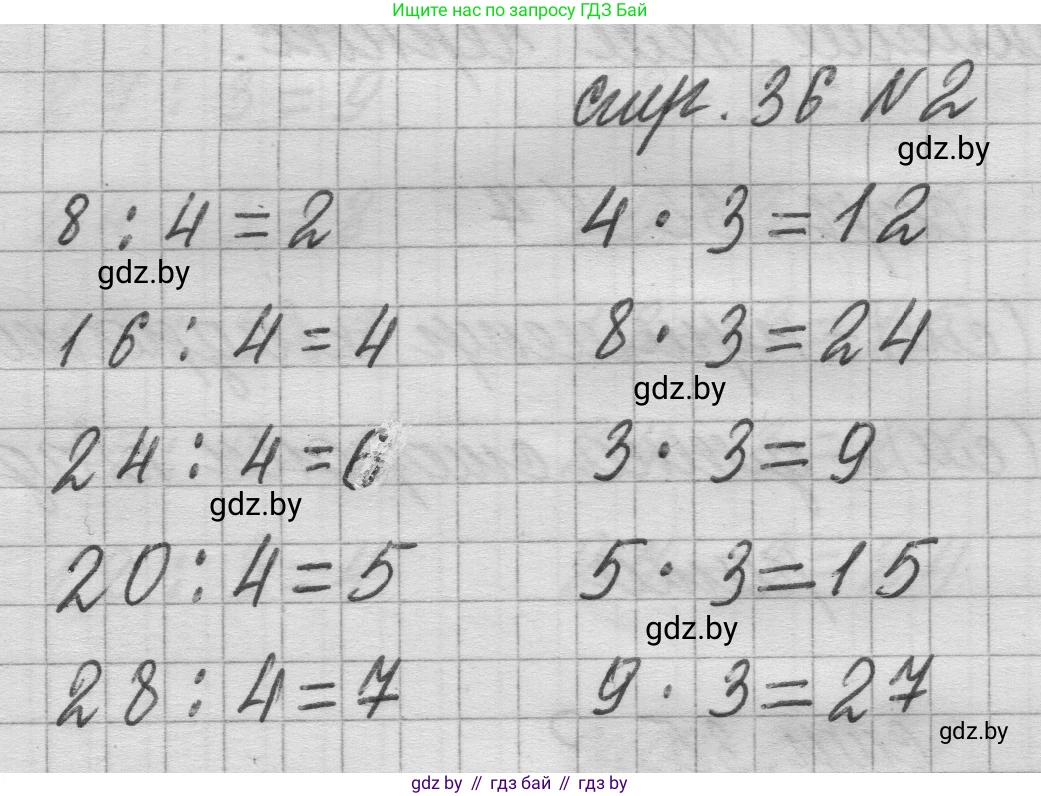 Ищите нас по запросу ГДЗ Бай
стр. 36 N2
gdz.by
8 : 4 = 2
4 · 3 = 12
gdz.by
16 : 4 = 4
8 · 3 = 24
gdz.by
24 : 4 = 6
3 · 3 = 9
gdz.by
20 : 4 = 5
5 · 3 = 15
gdz.by
28 : 4 = 7
9 · 3 = 27
gdz.by
gdz.by // гдз бай // гдз by